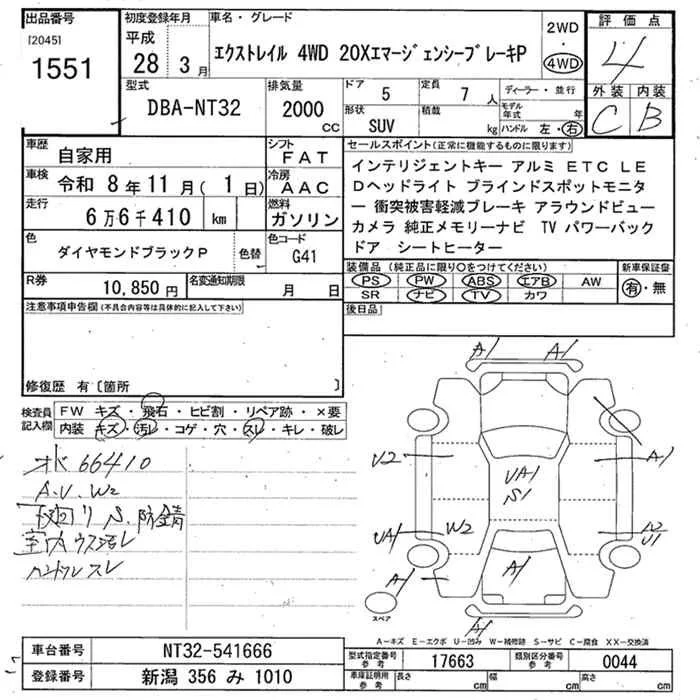 出品番号
[2045]
1551
初度登録年月
平成
28 3月
車名・グレード
エクストレイル 4WD 20XエマージェンシーブレーキP
2WD
・
4WD
評価点
4
外装 内装
C B
型式
DBA-NT32
排気量
2000
cc
ドア 5
定員 7人
形状
SUV
積載
kg
ディーラー・並行
モデル年式 年
ハンドル 左・右
車歴
自家用
シフト
FAT
車検
令和 8年11月( 1日)
冷房
AAC
走行
6万6千410 km
燃料
ガソリン
色
ダイヤモンドブラックP
色替
色コード
G41
R券
10,850円
名変通知期限
月 日
セールスポイント(正常に機能するものに限ります)
インテリジェントキー アルミ ETC LE
Dヘッドライト ブラインドスポットモニタ
ー 衝突被害軽減ブレーキ アラウンドビュー
カメラ 純正メモリーナビ TV パワーバック
ドア シートヒーター
装備品(純正品に限り○をつけてください)
PS PW ABS エアB AW
SR ナビ TV カワ
新車保証書
有・無
後日品
注意事項申告欄(不具合内容等は具体的に記入して下さい)
修復歴 有〔箇所 〕
検査員
記入欄
FW キズ・飛石・ヒビ割・リペア跡・×要
内装 キズ・汚レ・コゲ・穴・スレ・キレ・破レ
66410
A.U.W2
下廻リ S.防錆
室内ウス汚レ
ハンドルスレ
A1 A1
U2
A1
UA1
S1
UA1
W2
W2
U1
A1
A1
スペア
A1
A-キズ E-エクボ U-凹み W-補修跡 S-サビ C-腐食 XX-交換済
車台番号
NT32-541666
登録番号
新潟 356 み 1010
型式指定番号
参考
17663
類別区分番号
参考
0044
車庫証明用
参考
長さ cm
幅 cm
高さ cm